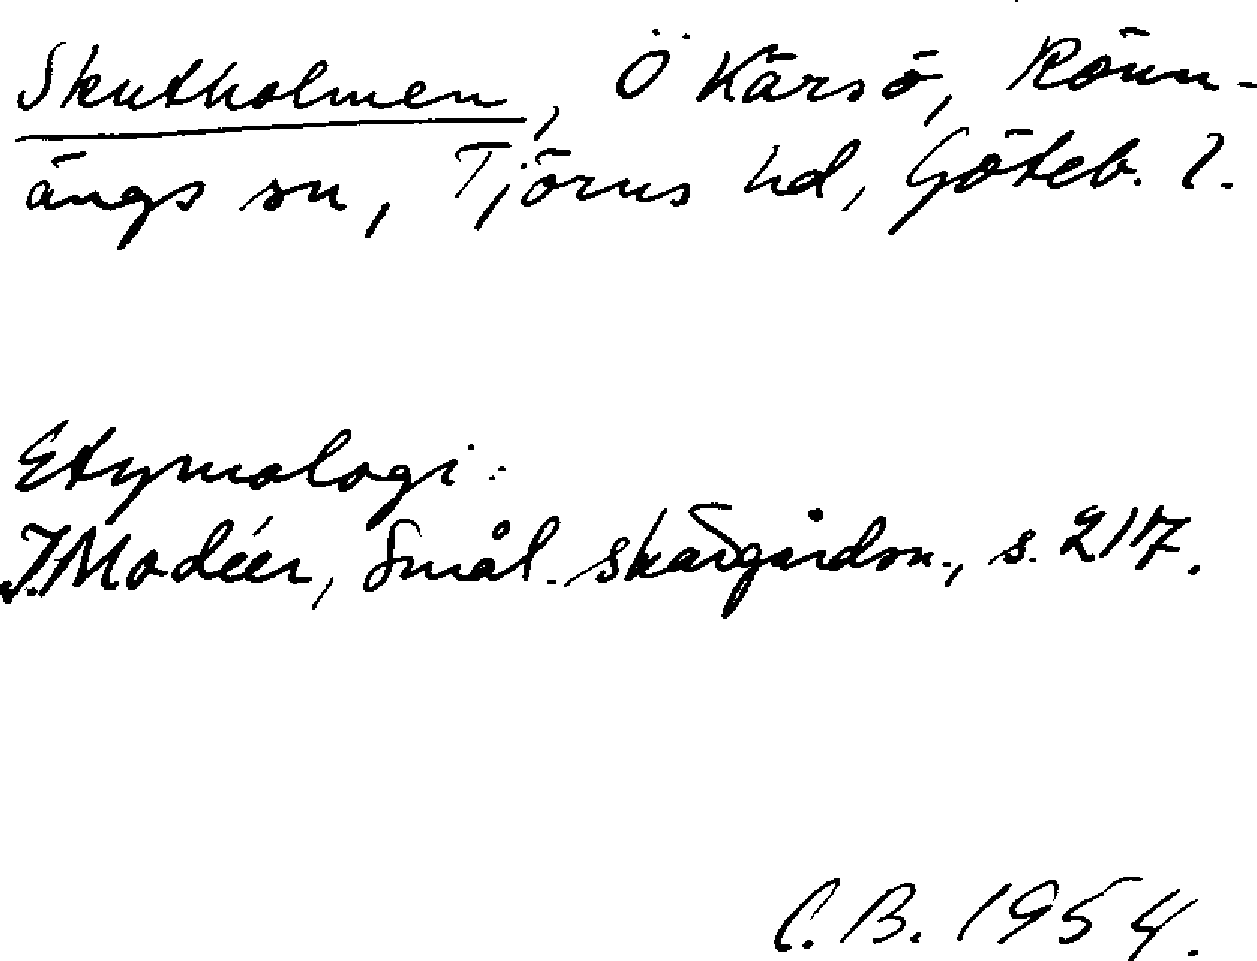 Skutholmen, Ö Kärsö, Rönn-
ängs sn, Tjörns hd, Göteb. l.
Etymologi:
I. Modéer, Smål. skärgårdsn., s. 217.
C.B. 1954.